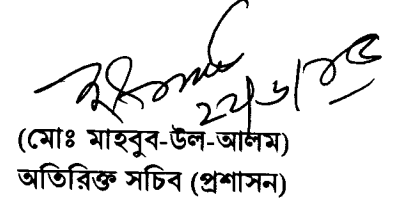 ২২/৬/২৫
(মোঃ মাহবুব-উল-আলম)
অতিরিক্ত সচিব (প্রশাসন)